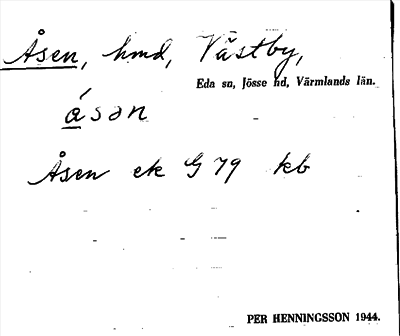 Åsen, hmd, Västby,
Eda sn, Jösse hd, Värmlands län.
ásan
Åsen ek G 79 kb
PER HENNINGSSON 1944.